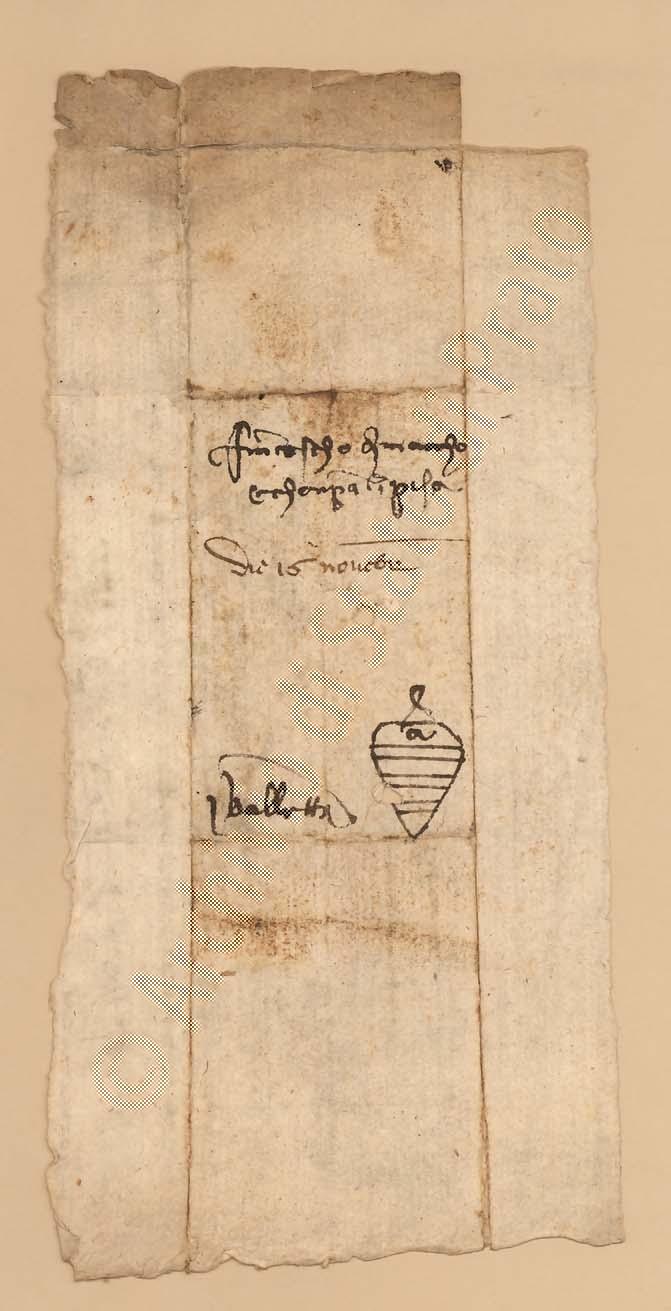 franc̅escho di marcho
e chonp̅a i̅ pisa
die 15 novebr̅
1 balletta
a
© Archivio di Stato di Prato